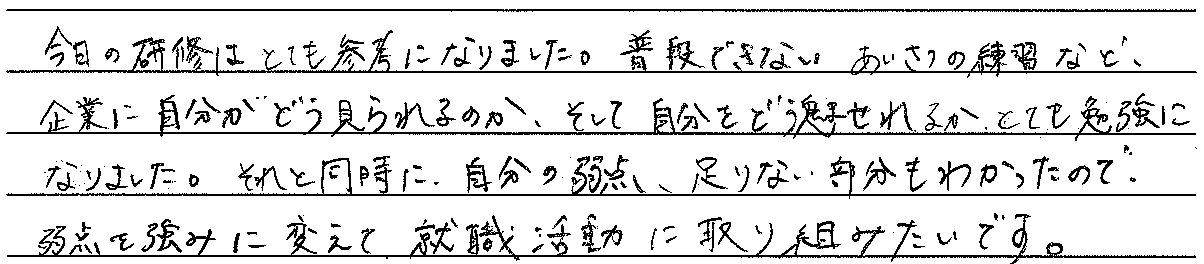 今日の研修はとても参考になりました。普段できない あいさつの練習など、
企業に自分がどう見られるのか、そして自分をどう魅せれるか、とても勉強に
なりました。それと同時に、自分の弱点、足りない部分もわかったので、
弱点を強みに変えて、就職活動に取り組みたいです。